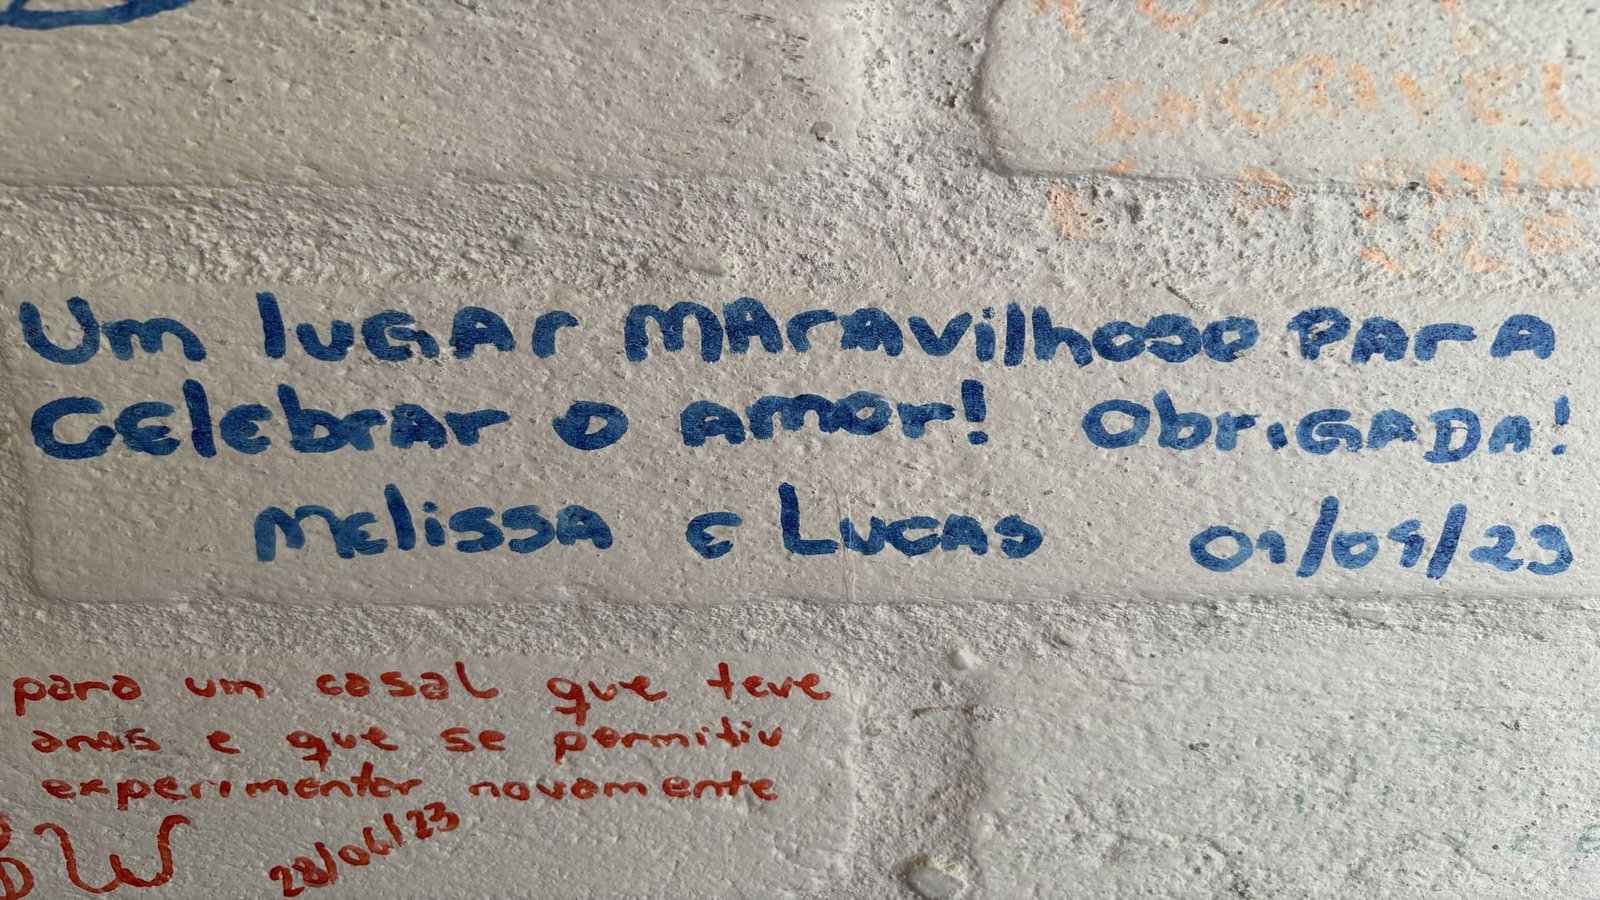 INCRÍVEL
Um lugar maravilhoso para
celebrar o amor! Obrigada!
Melissa e Lucas 01/09/23
para um casal que teve
anos e que se permitiu
experimentar novamente
W 28/06/23